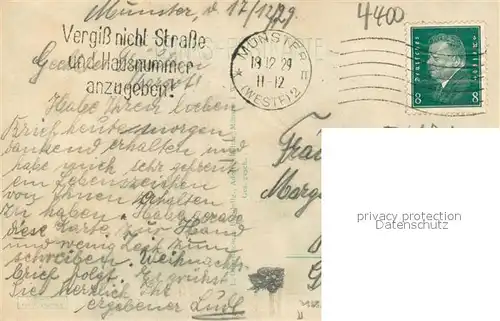 Münster, d. 17/12 29
4400
Vergiß nicht Straße
und Hausnummer
anzugeben!
MÜNSTER
19.12.29
11-12
* (WESTF) 2 II
Deutsches Reich
8 8
Habe Ihren lieben
Brief heute morgen
dankend erhalten und
habe mich sehr gefreut
ein Lebenszeichen
von Ihnen erhalten
zu haben. Habe gerade
diese Karte zur Hand
und wenig Zeit zum
schreiben. Weihnachts-
brief folgt. Es grüßt
Sie herzlich Ihr
ergebener
Frau
Marg
privacy protection
Datenschutz